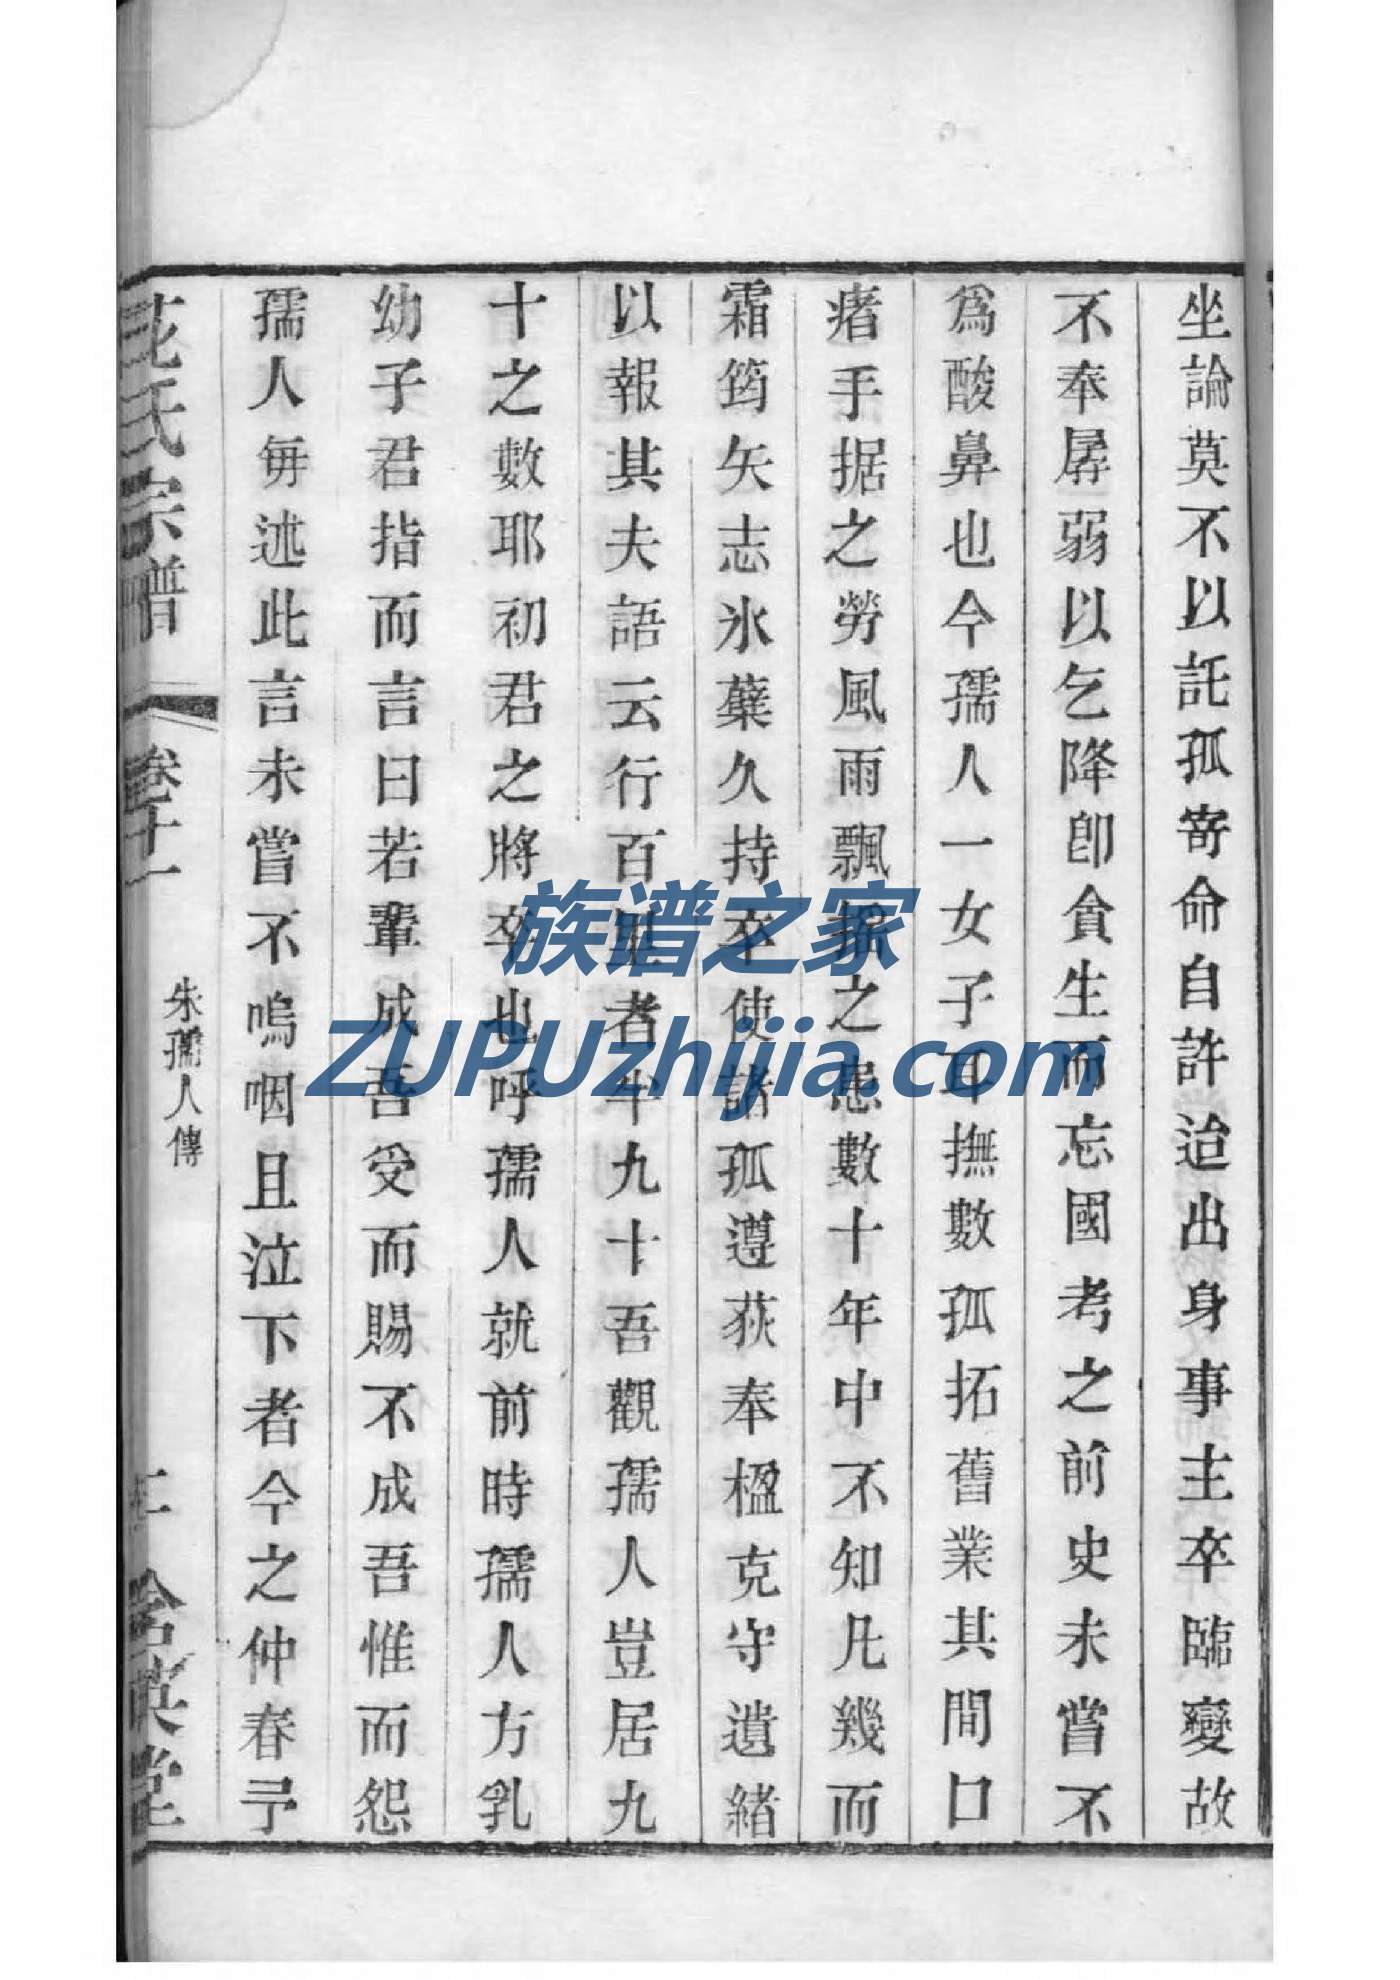 坐論莫不以託孤寄命自許迨出身事主卒臨變故
不奉孱弱以乞降卽貪生而忘國考之前史未嘗不
爲酸鼻也今孺人一女子耳撫數孤拓舊業其間口
瘏手据之勞風雨飄搖之患數十年中不知凡幾而
霜筠矢志氷蘗久持卒使諸孤遵荻奉楹克守遺緒
以報其夫語云行百里者半九十吾觀孺人豈居九
十之數耶初君之將卒也呼孺人就前時孺人方乳
幼子君指而言曰若輩成吾受而賜不成吾惟而怨
孺人每述此言未嘗不嗚咽且泣下者今之仲春予
氏宗譜
卷十一
朱孺人傳
堂
族谱之家
ZUPUzhijia.com